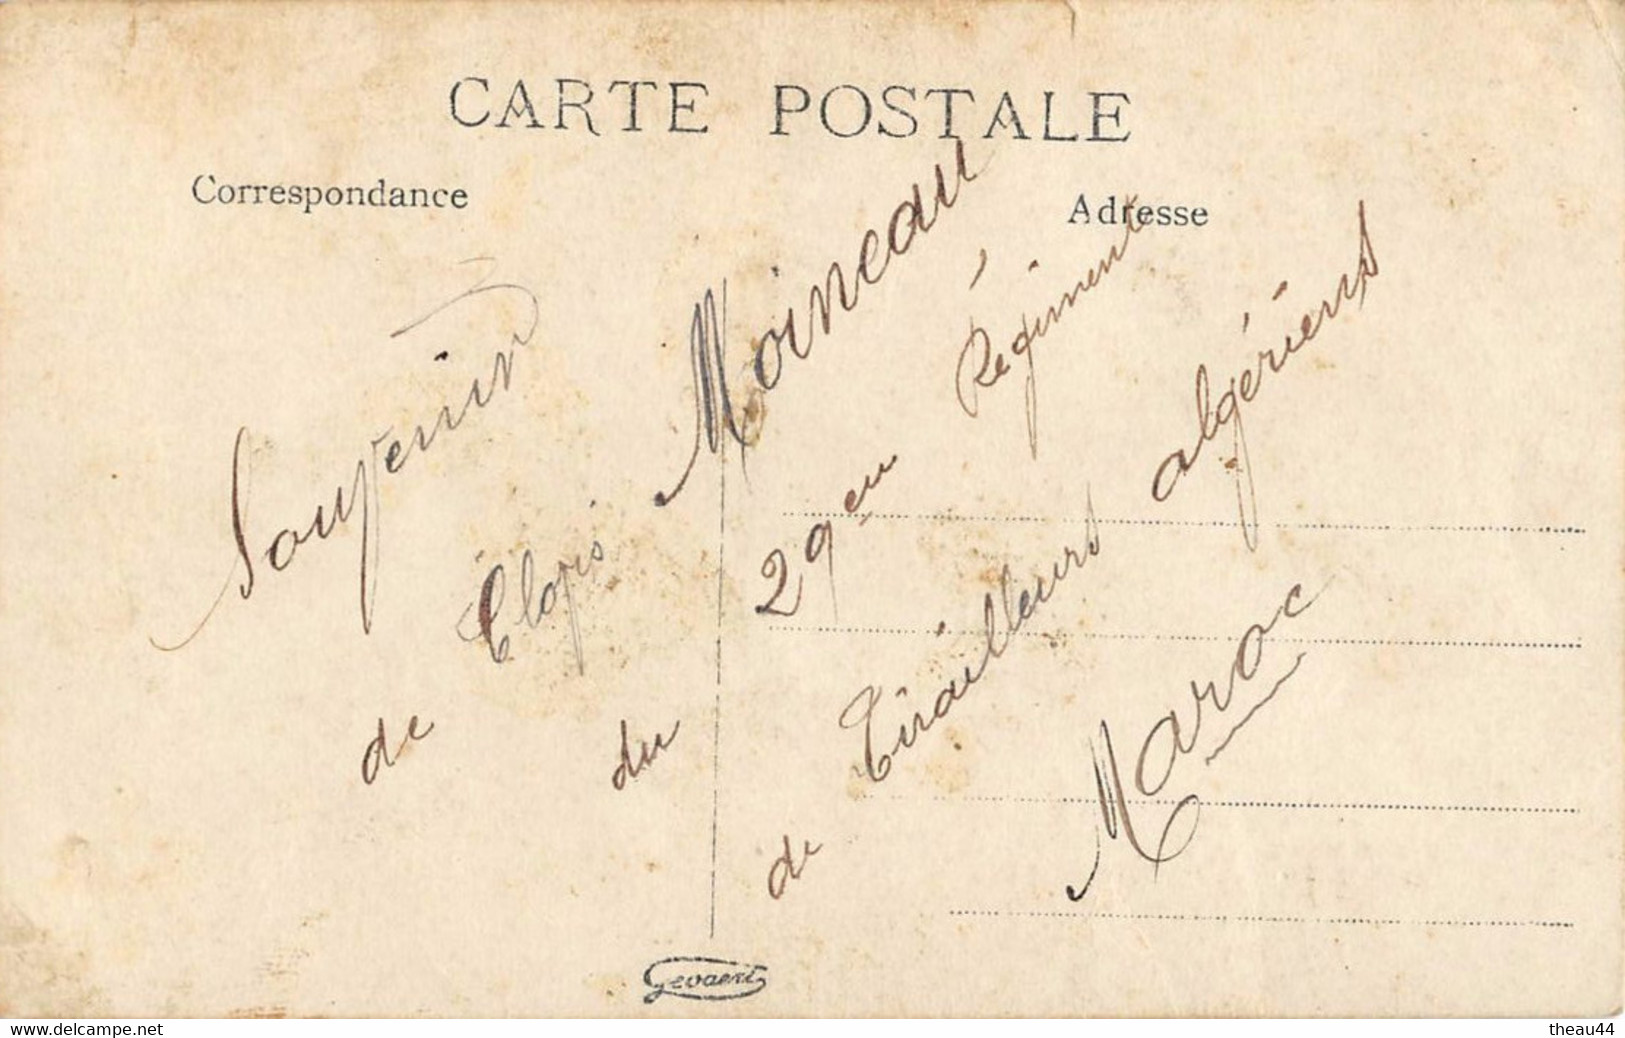 CARTE POSTALE
Correspondance
Adresse
Souvenir
de Clovis Moineau
du 29eu Régiment
de Tirailleurs algériens
Maroc
Gevaert
www.delcampe.net
theau44